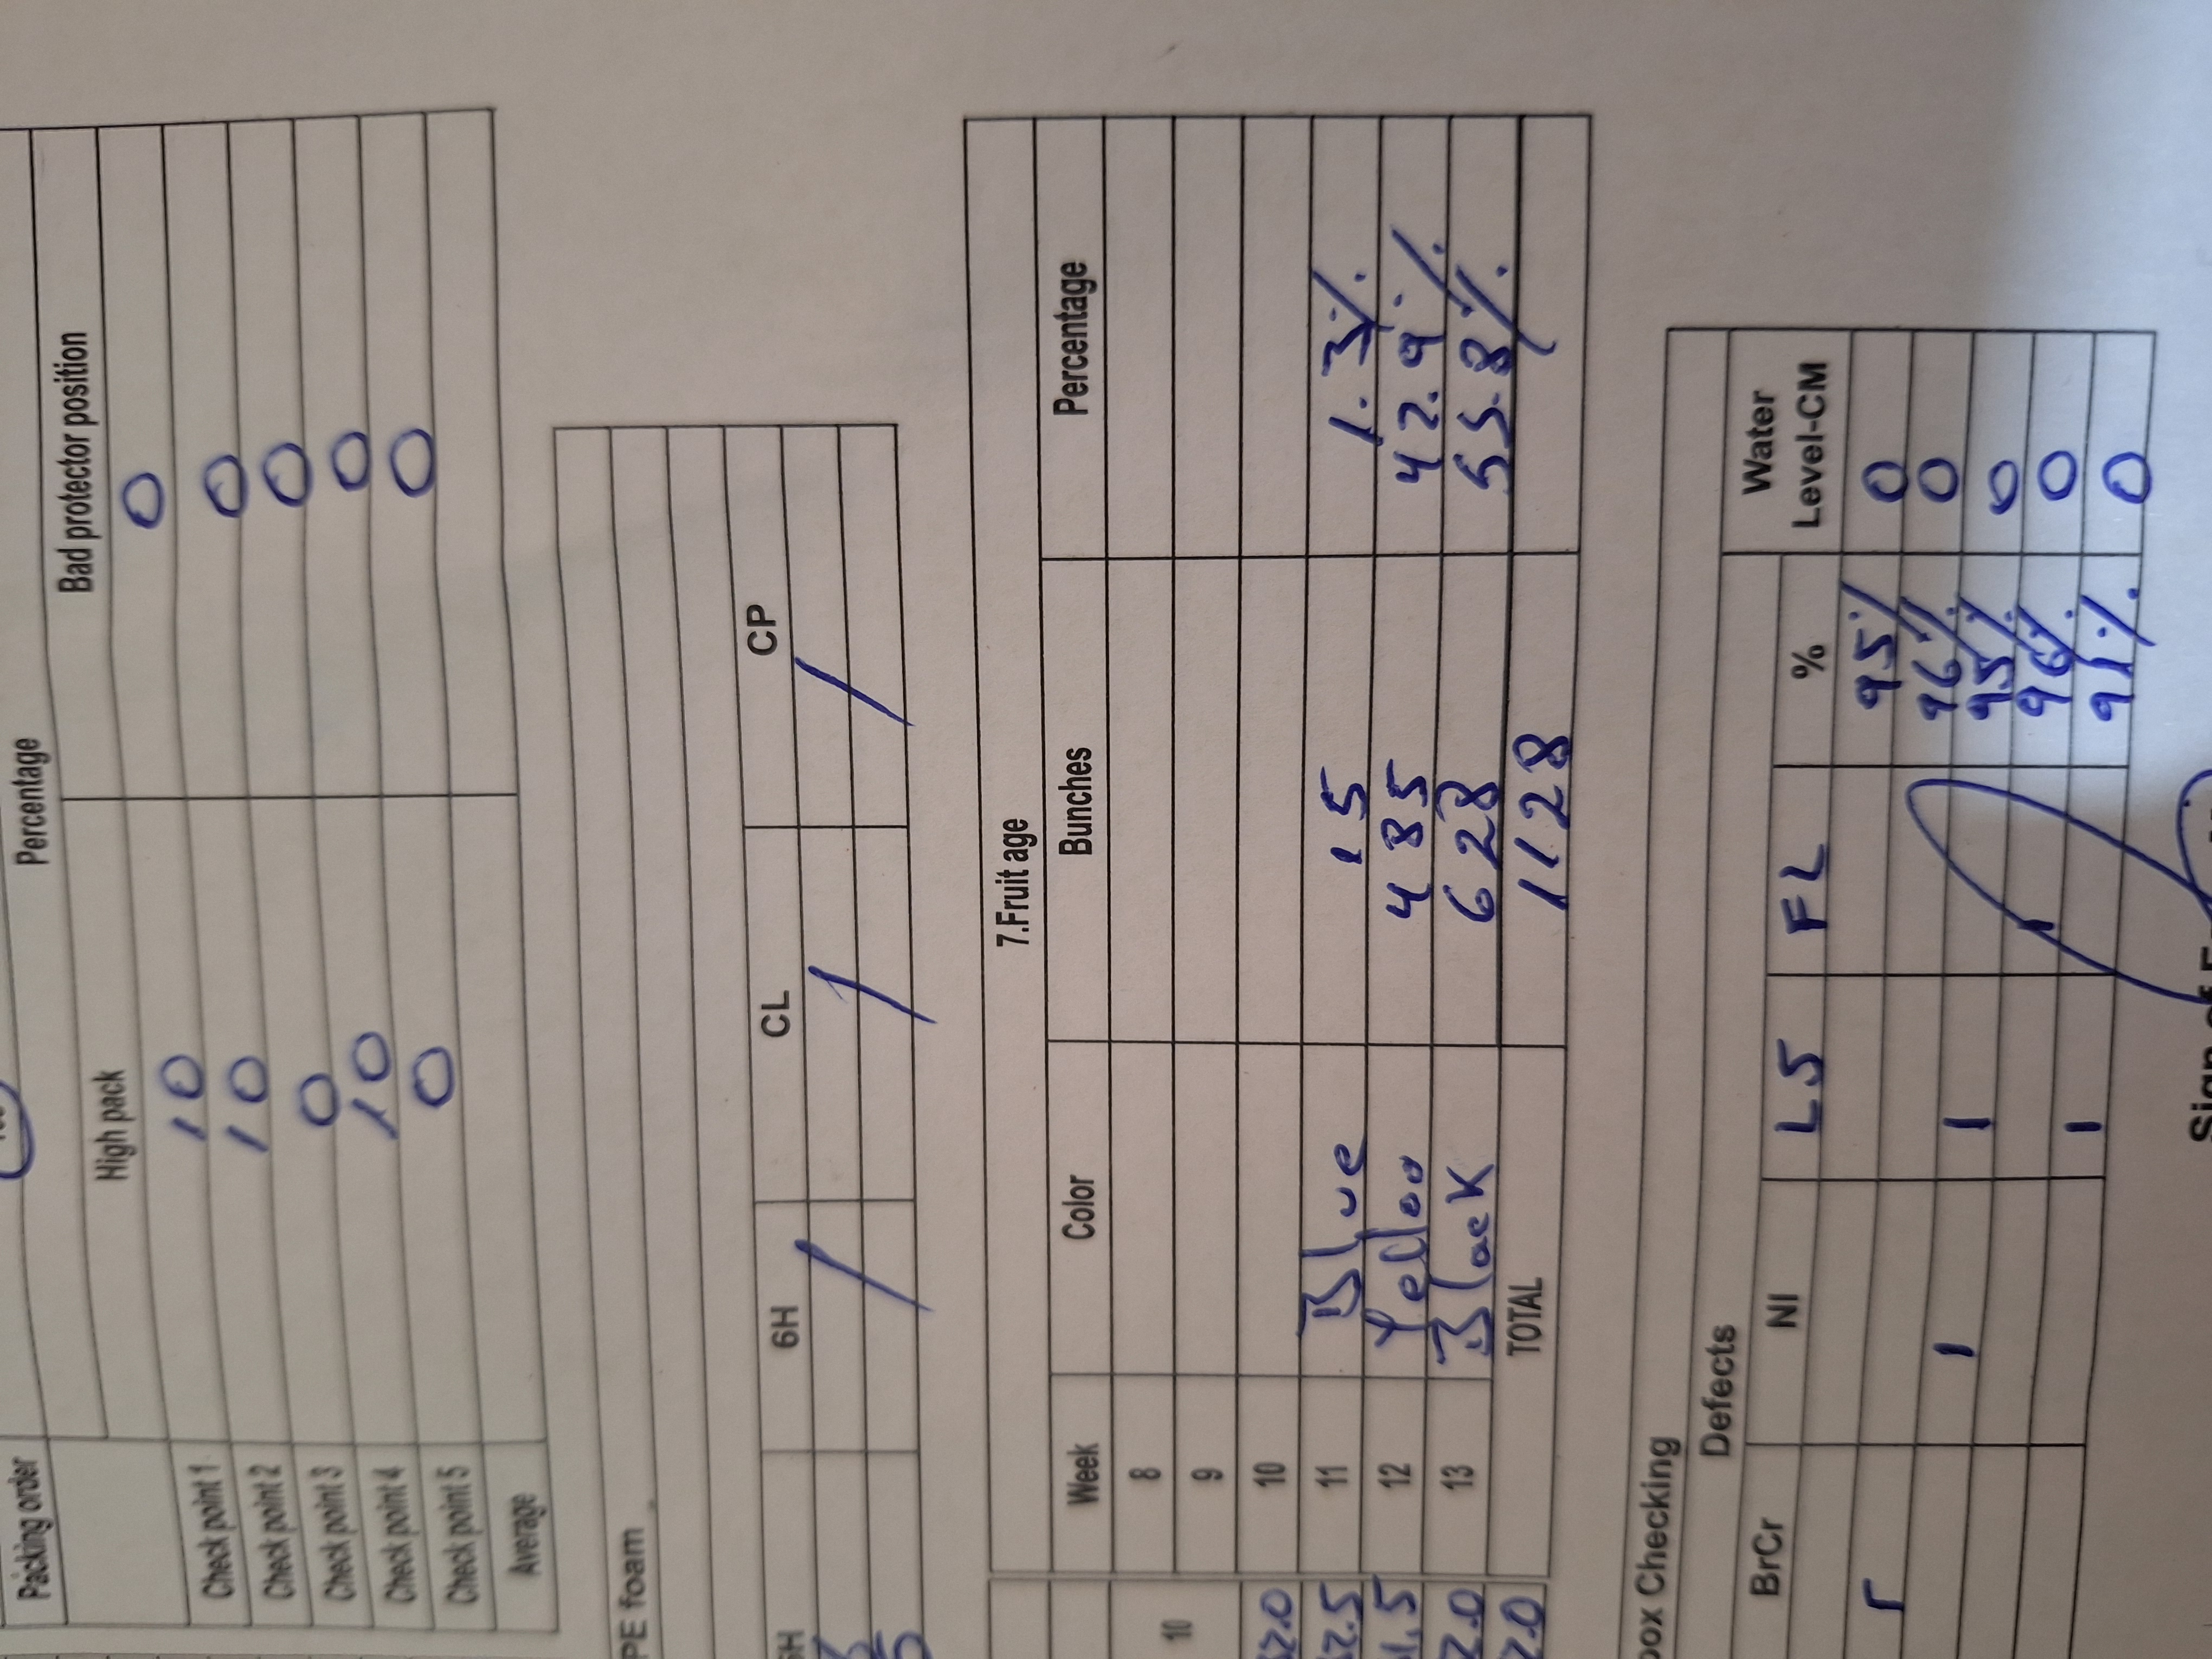 Packing order
Percentage
High pack Bad protector position
Check point 1 10 0
Check point 2 10 0
Check point 3 0 0
Check point 4 10 0
Check point 5 0 0
Average
PE foam
6H CL CP
/ / /
7.Fruit age
Week Color Bunches Percentage
8
9
10
11 Blue 15 1.3%
12 Yelloo 485 42.9%
13 Black 628 55.8%
TOTAL 1128
10
2.0
2.5
1.5
2.0
2.0
box Checking
Defects
BrCr NI LS FL % Water Level-CM
95% 0
96% 0
1 1 95% 0
1 96% 0
1 91% 0